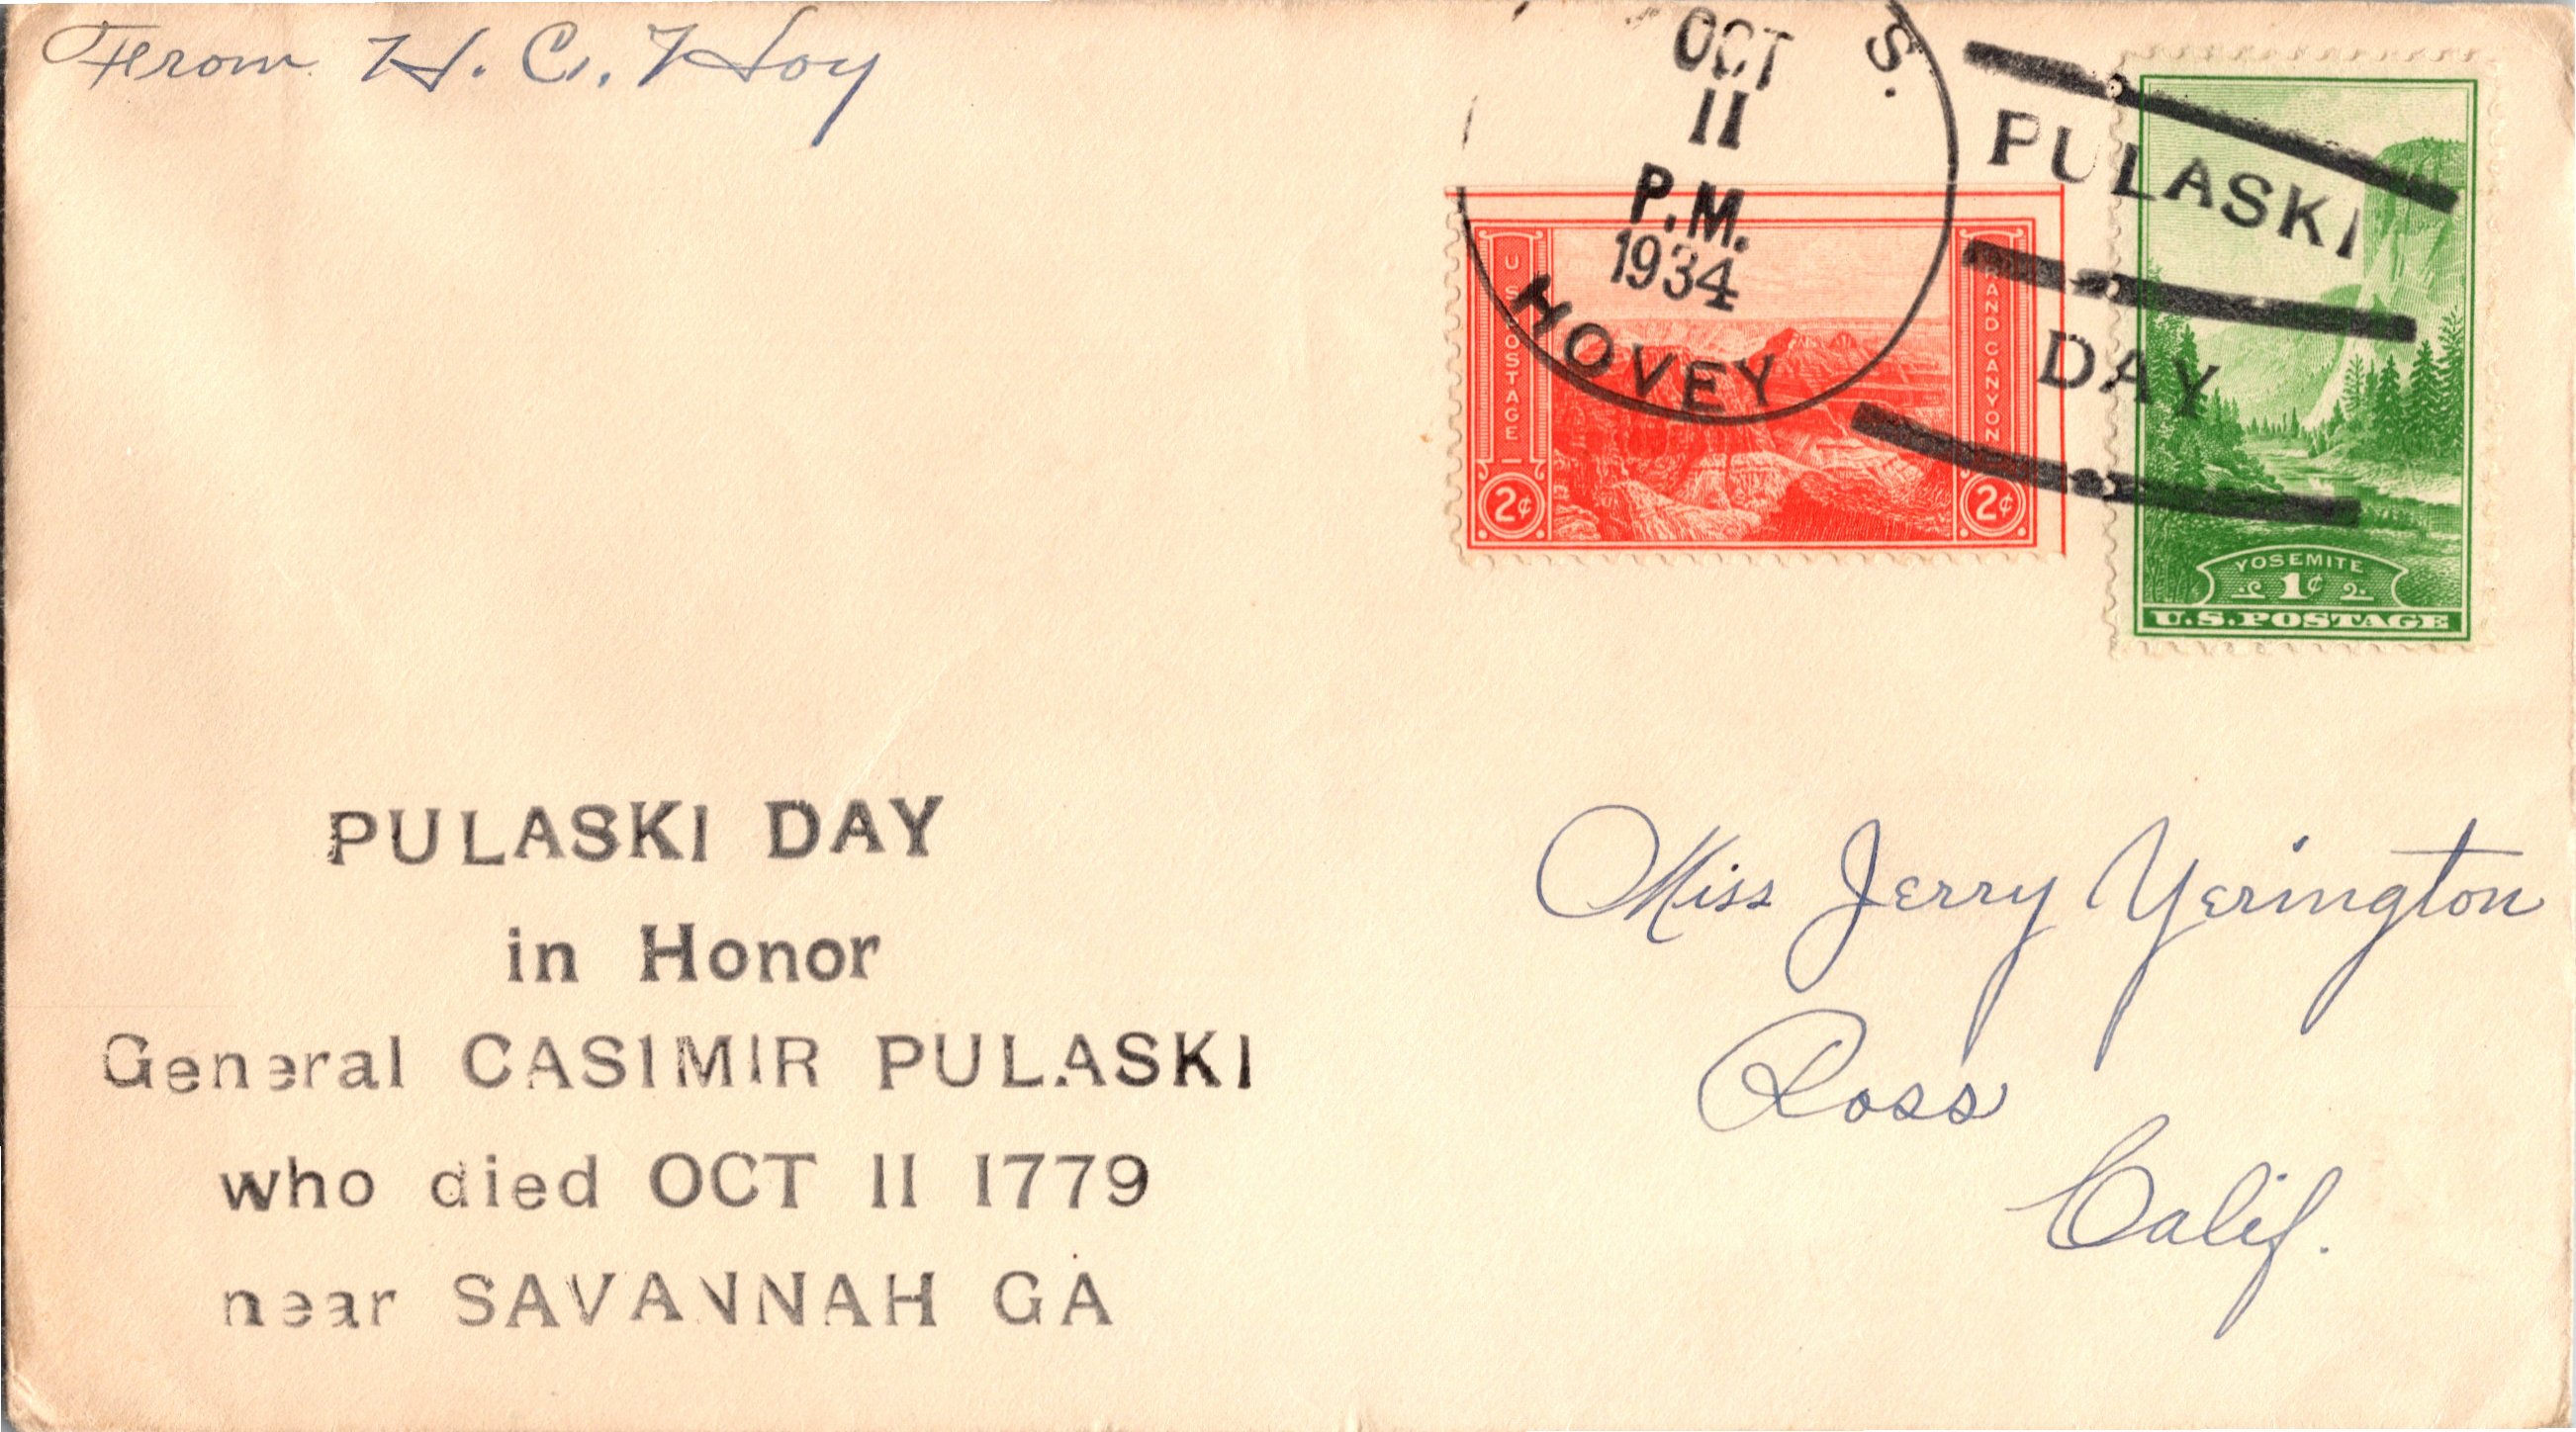 From H. C. Hoy
S.
OCT
11
P.M.
1934
HOVEY
PULASKI
DAY
U S POSTAGE
GRAND CANYON
2¢ 2¢
YOSEMITE
1¢
U.S. POSTAGE
PULASKI DAY
in Honor
General CASIMIR PULASKI
who died OCT 11 1779
near SAVANNAH GA
Miss Jerry Yerington
Ross
Calif.